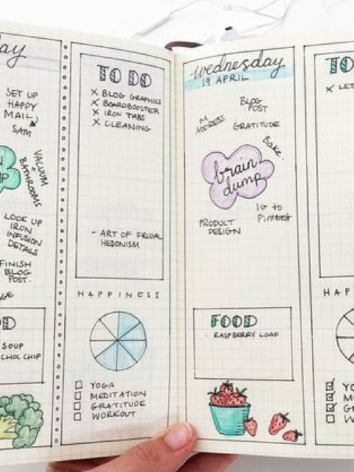 ay
SET UP
HAPPY
MAIL
SATN
VACUUM
+
BATHROOMS
MP
LOOK UP
IRON
INFUSION
DETAILS
FINISH
BLOG
POST.
GE
OD
SOUP
CHOC CHIP
TO DO
X BLOG GRAPHICS
X BOARDBOOSTER
X IRON TABS
X CLEANING
- ART OF FRUGAL
HEDONISM
HAPPINESS
YOGA
MEDITATION
GRATITUDE
WORKOUT
wednesday
19 APRIL
BLOG
POST
M
ADDRESS
GRATITUDE
Bake
brain
dump
IG to
Pinterest
PRODUCT
DESIGN
FOOD
- RASPBERRY LOAF
TO
X LET
HAPP
YO
ME
G
WO